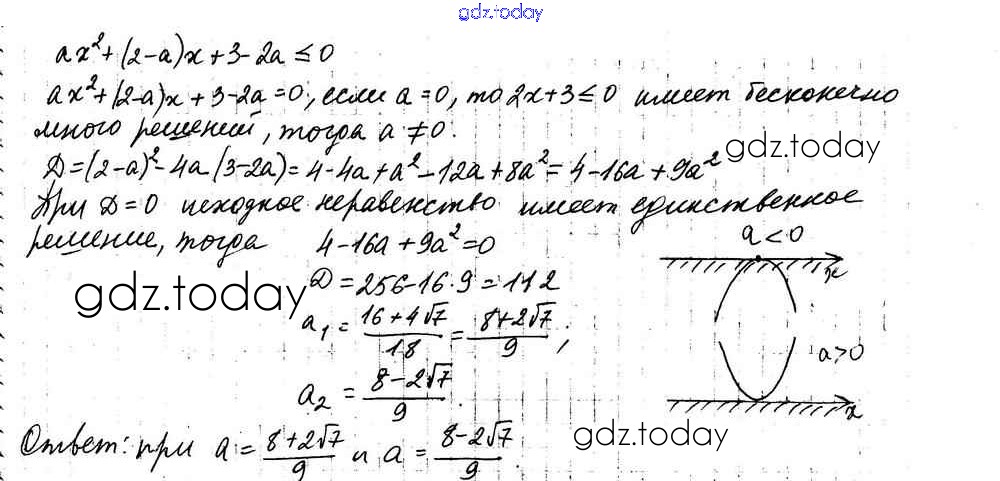 gdz.today
ax² + (2-a)x + 3-2a ≤ 0
ax² + (2-a)x + 3-2a = 0, если a = 0, то 2x+3 ≤ 0 имеет бесконечно
много решений, тогда a ≠ 0.
gdz.today
Д = (2-a)² - 4a(3-2a) = 4-4a+a²-12a+8a² = 4-16a+9a²
При Д=0 исходное неравенство имеет единственное
решение, тогда 4-16a+9a²=0
a<0
x
Д = 256-16·9 = 112
gdz.today
a₁ = (16+4√7)/18 = (8+2√7)/9;
a>0
a₂ = (8-2√7)/9.
x
Ответ: при a = (8+2√7)/9 и a = (8-2√7)/9.
gdz.today